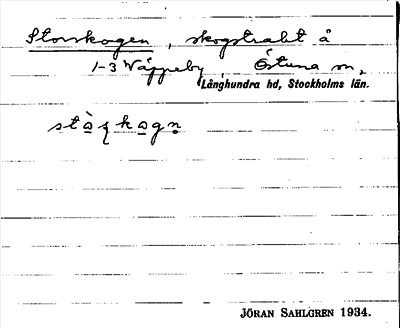 Storskogen, skogstrakt å
1-3 Väppeby, Östuna sn,
Långhundra hd, Stockholms län.
JÖRAN SAHLGREN 1934.